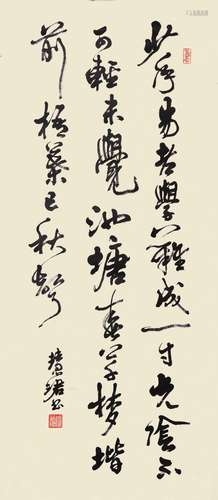 少年易老學難成一寸光陰不
可輕未覺池塘春草梦堦
前梧葉已秋聲